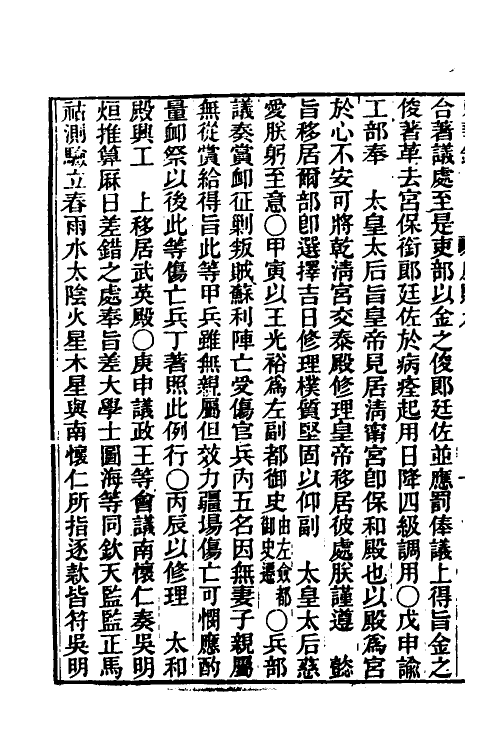 台著議處至是吏部以金之俊郎廷佐並應罰俸議上得旨金之
俊著革去宮保銜郎廷佐於病痊起用日降四級調用〇戊申諭
工部奉　太皇太后旨皇帝見居清寧宮卽保和殿也以殿爲宮
於心不安可將乾清宮交泰殿修理皇帝移居彼處朕謹遵　懿
旨移居爾部卽選擇吉日修理樸質堅固以仰副　太皇太后慈
愛朕躬至意〇甲寅以王光裕爲左副都御史由左僉都御史遷〇兵部
議奏賞卹征剿叛賊蘇利陣亡受傷官兵內五名因無妻子親屬
無從賞給得旨此等甲兵雖無親屬但效力疆場傷亡可憫應酌
量卹祭以後此等傷亡兵丁著照此例行〇丙辰以修理　太和
殿興工　上移居武英殿〇庚申議政王等會議南懷仁奏吳明
烜推算厤日差錯之處奉旨差大學士圖海等同欽天監監正馬
祜測驗立春雨水太陰火星木星與南懷仁所指逐款皆符吳明